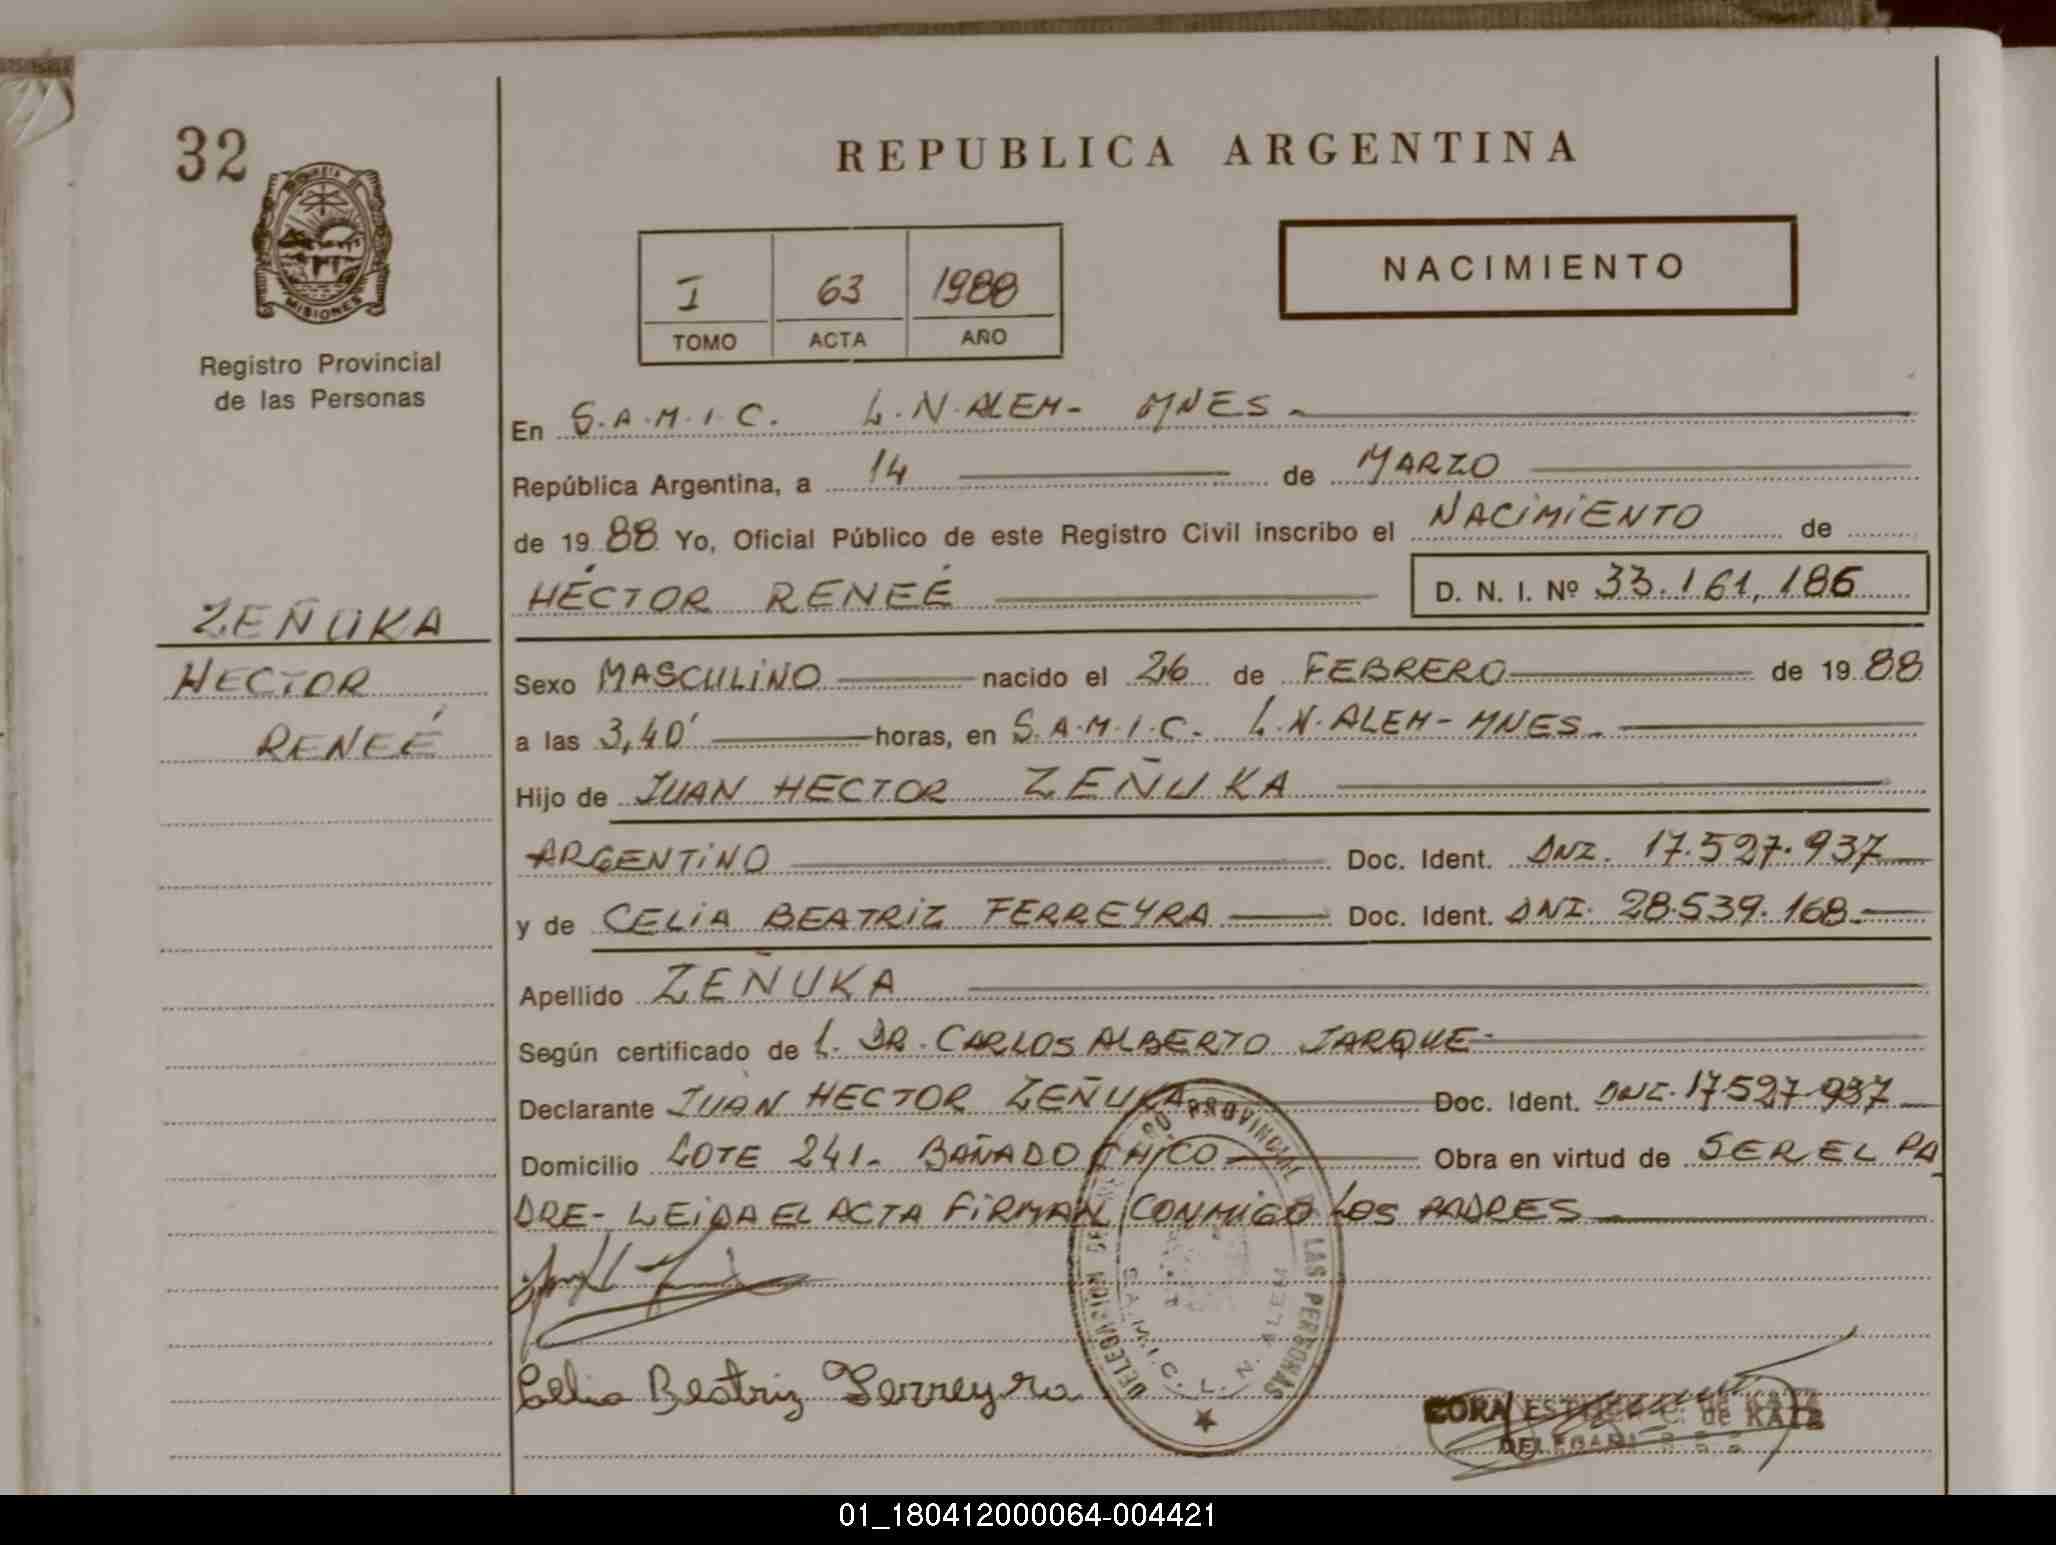 32
REPUBLICA ARGENTINA
MISIONES
Registro Provincial
de las Personas
I 63 1988
TOMO ACTA AÑO
NACIMIENTO
En S.A.M.I.C. L.N.ALEM- MNES.
República Argentina, a 14 de MARZO
de 19 88 Yo, Oficial Público de este Registro Civil inscribo el NACIMIENTO de
HÉCTOR RENEÉ D. N. I. Nº 33.161.186
ZEÑUKA
HECTOR
RENEÉ
Sexo MASCULINO nacido el 26 de FEBRERO de 19 88
a las 3,40' horas, en S.A.M.I.C. L.N.ALEM-MNES.
Hijo de JUAN HECTOR ZEÑUKA
ARGENTINO Doc. Ident. DNI. 17.527.937
y de CELIA BEATRIZ FERREYRA Doc. Ident. DNI. 28.539.168.
Apellido ZEÑUKA
Según certificado de L. DR. CARLOS ALBERTO JARQUE
Declarante JUAN HECTOR ZEÑUKA Doc. Ident. DNI. 17527937
Domicilio LOTE 241. BAÑADO CHICO Obra en virtud de SER EL PA
DRE- LEIDA EL ACTA FIRMAN CONMIGO LOS PADRES
DELEGACION DEL REGISTRO PROVINCIAL DE LAS PERSONAS
S.A.M.I.C. L. N. ALEM
Celia Beatriz Ferreyra
C. de KATZ
01_180412000064-004421